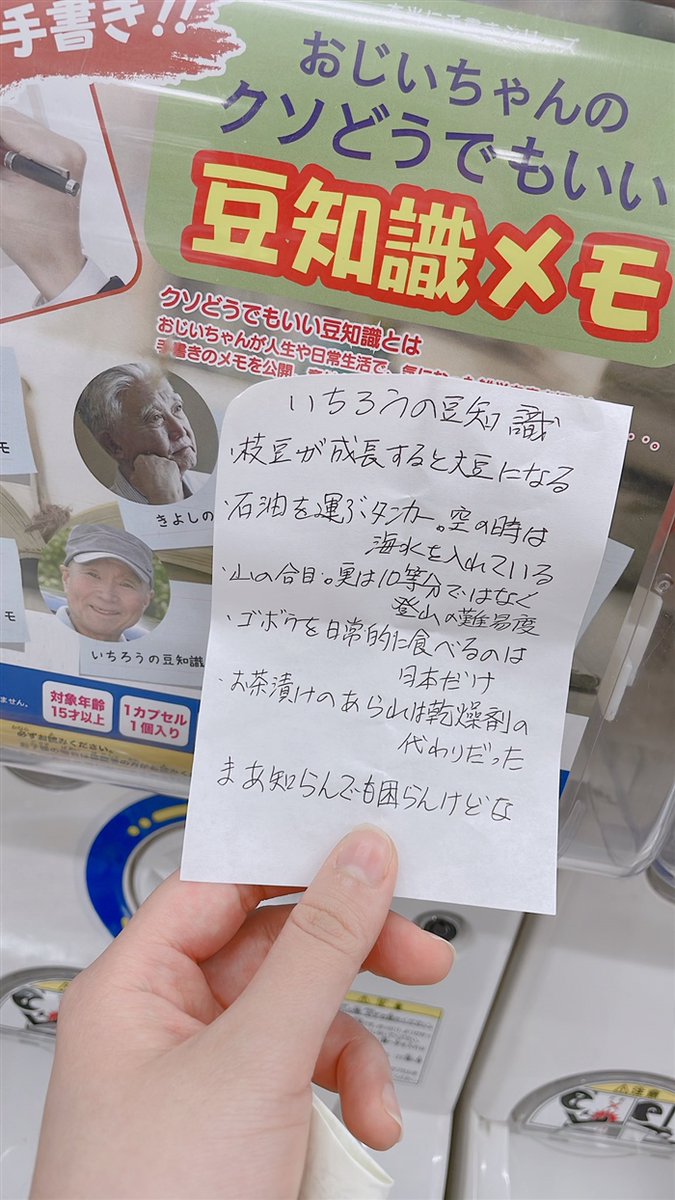 手書き!!
本当に手書きシリーズ
おじいちゃんの
クソどうでもいい
豆知識メモ
クソどうでもいい豆知識とは
おじいちゃんが人生や日常生活で、気に
手書きのメモを公開
きよしの
いちろうの豆知識
モ
モ
いちろうの豆知識
・枝豆が成長すると大豆になる
・石油を運ぶタンカー。空の時は
海水を入れている
・山の合目。実は10等分ではなく
登山の難易度
・ゴボウを日常的に食べるのは
日本だけ
・お茶漬けのあられは乾燥剤の
代わりだった
まあ知らんでも困らんけどな
ません。
対象年齢
15才以上
1カプセル
1個入り
必ずお読みください。
注意